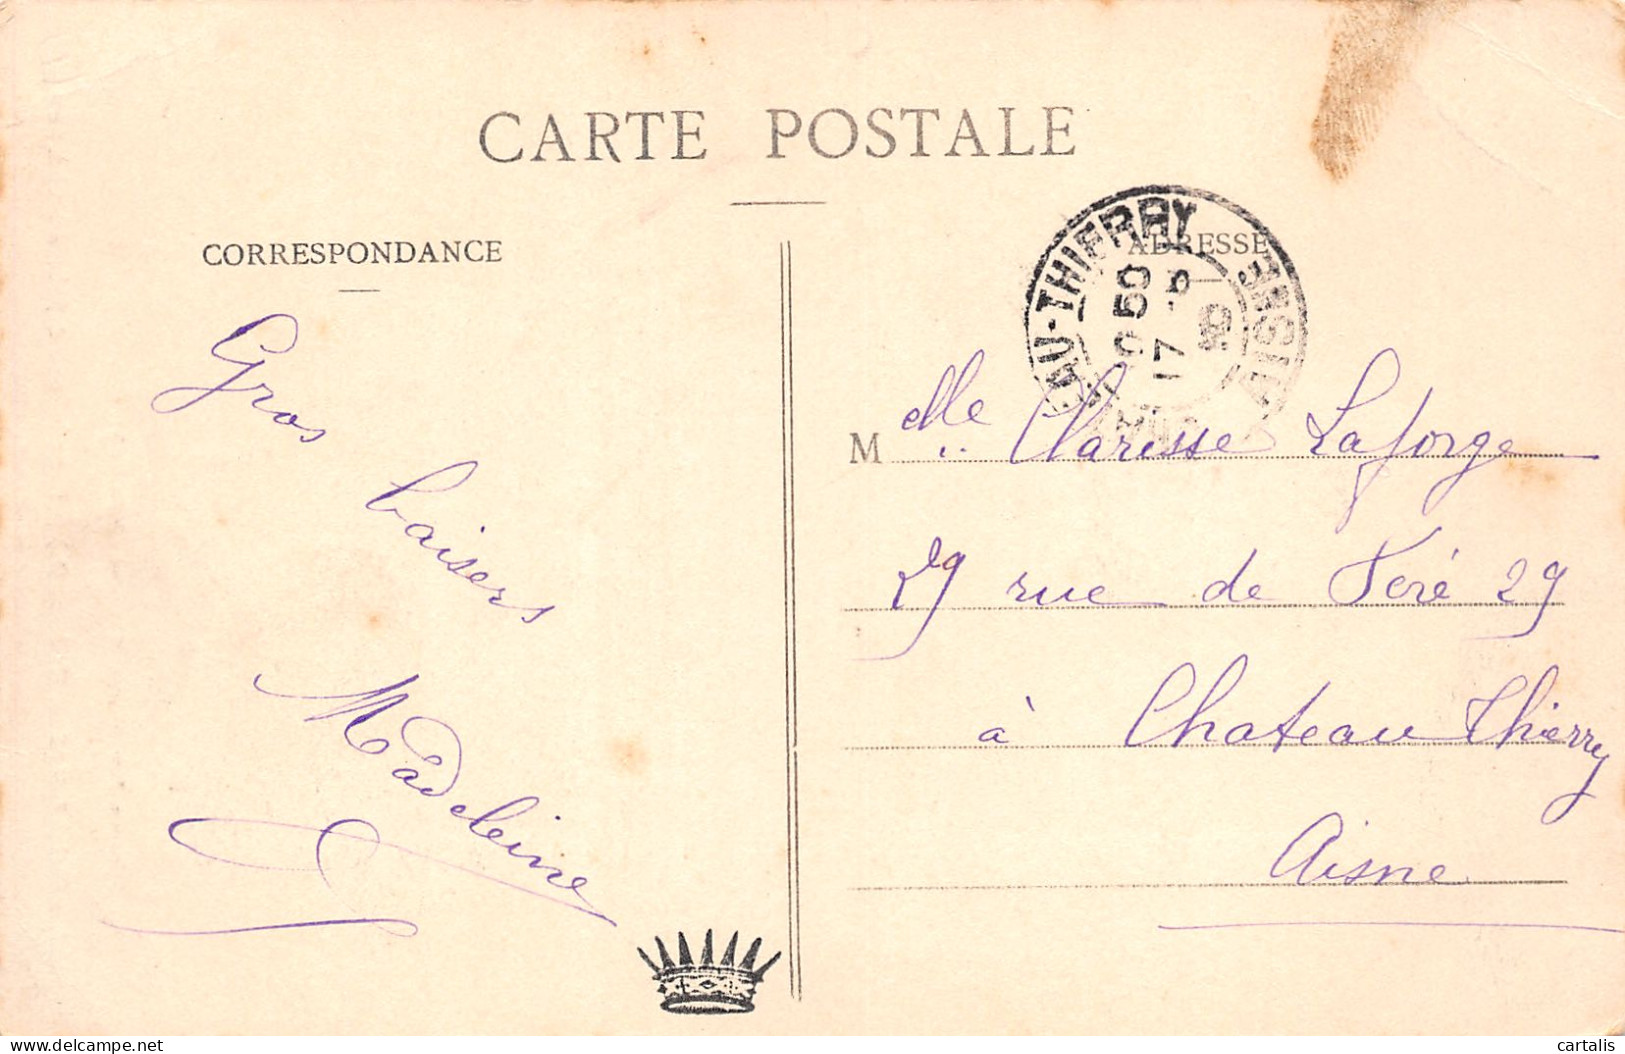 CARTE POSTALE
CORRESPONDANCE
ADRESSE
EAU-THIERRY
AISNE
17
Gros
baisers
Madeleine
M elle Clarisse Laforge
29 rue de Feré 29
à Chateau Thierry
Aisne
delcampe.net
cartalis